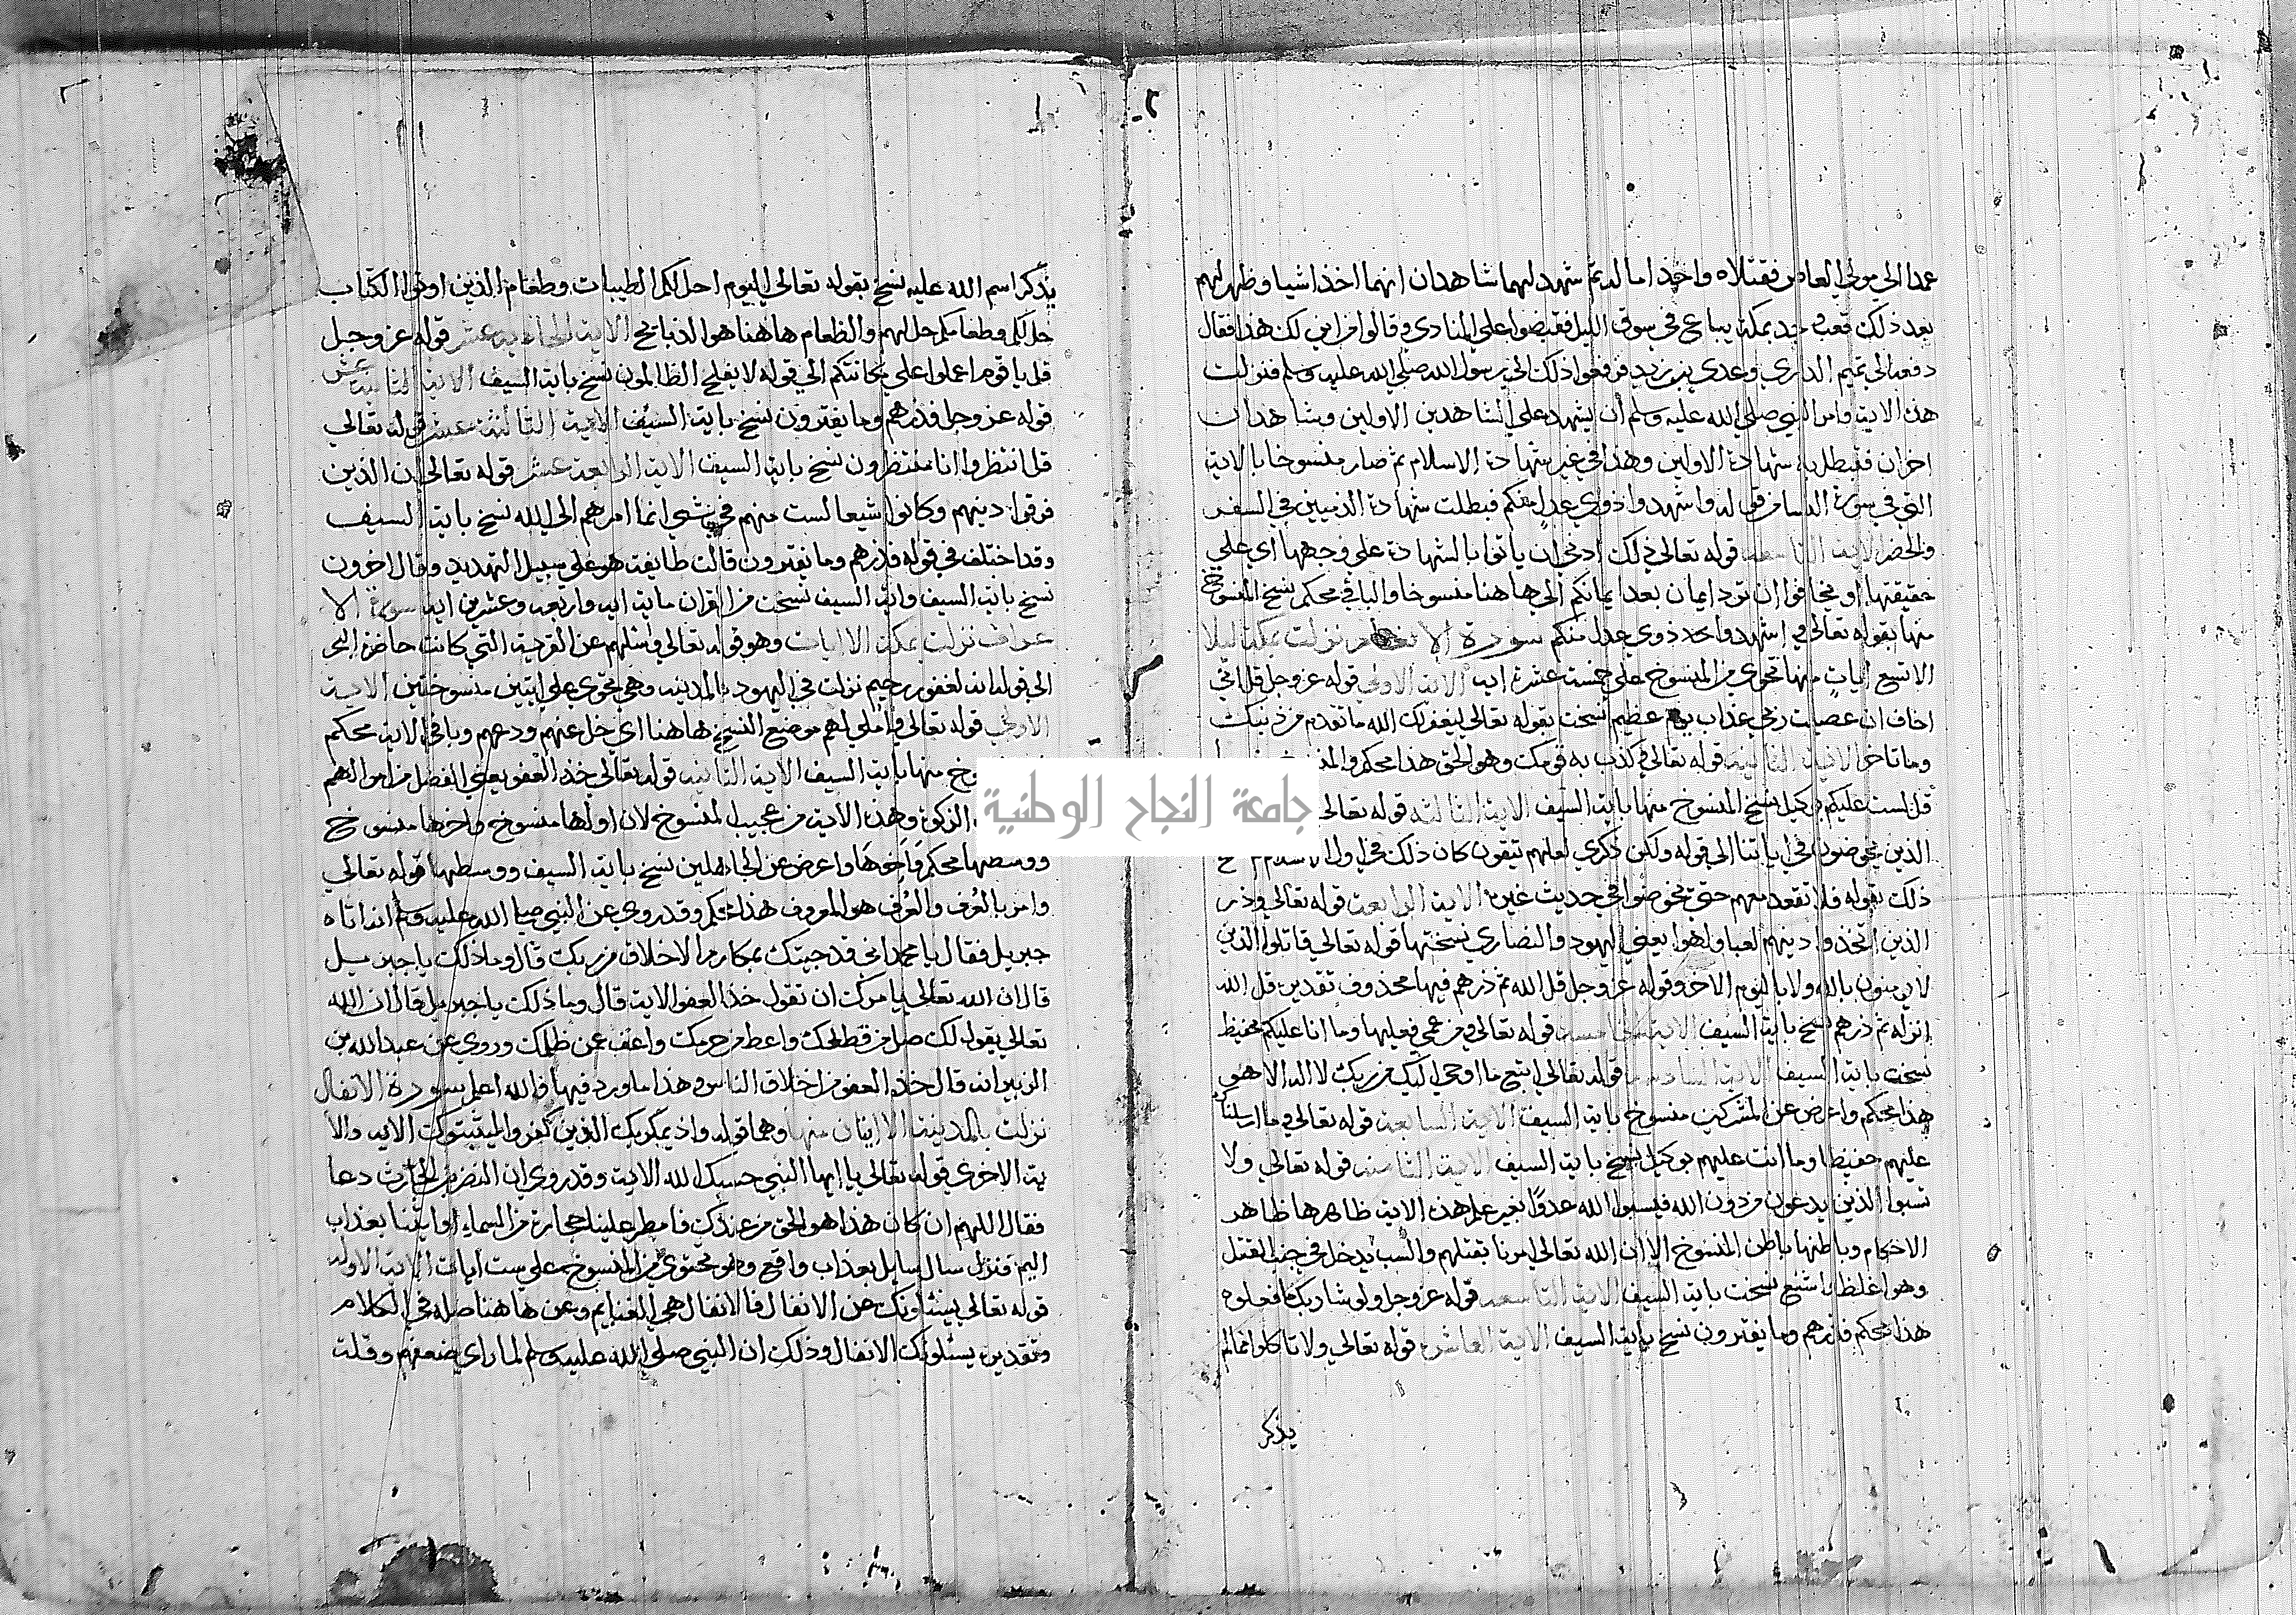 عمدا الي مولي العاص فقتلاه واخذا ماله ثم شهد لهما شاهدان انهما اخذا شيا وظهر لهم
بعد ذلك قعب وجد بمكة يباع في سوق الليل فقبضوا علي المنادي وقالوا من اين لك هذا فقال
دفعه الي تميم الداري وعدي بن زيد فرفعوا ذلك الي رسول الله صلي الله عليه وسلم فنزلت
هذه الاية وامر النبي صلي الله عليه وسلم ان يشهد علي الشاهدين الاولين وشاهدان
اخران فتبطل به شهادة الاولين وهذا في غير شهادة الاسلام ثم صار منسوخا بالاية
التي في سورة النسا من قوله واشهدوا ذوي عدل منكم فبطلت شهادة الذميين في السفر
والحضر الاية التاسعة قوله تعالي ذلك ادني ان ياتوا بالشهادة علي وجهها اي علي
حقيقتها او يخافوا ان ترد ايمان بعد ايمانهم الي هاهنا منسوخا والباقي محكم نسخ المنسوخ
منها بقوله تعالي واشهدوا ذوي عدل منكم سورة الانعام نزلت بمكة ليلا
الا تسع ايات منها تحتوي من المنسوخ علي خمسة عشرة اية الاية الاولي قوله عز وجل قل اني
اخاف ان عصيت ربي عذاب يوم عظيم نسخت بقوله تعالي ليغفر لك الله ما تقدم من ذنبك
وما تاخر الاية الثانية قوله تعالي وكذب به قومك وهو الحق هذا محكم والمنسوخ
قل لست عليكم بوكيل نسخ المنسوخ منها باية السيف الاية الثالثة قوله تعالي
الذين يخوضون في اياتنا الي قوله ولكن ذكري لعلهم يتقون كان ذلك في اول الاسلام
ذلك بقوله فلا تقعد معهم حتي يخوضوا في حديث غيره الاية الرابعة قوله تعالي وذر
الذين اتخذوا دينهم لعبا ولهوا يعني اليهود والنصاري نسختها قوله تعالي قاتلوا الذين
لا يومنون بالله ولا باليوم الاخر وقوله عز وجل قل الله ثم ذرهم فيها محذوف تقديره قل الله
انزله ثم ذرهم نسخ باية السيف الاية الخامسة قوله تعالي ومن عمي فعليها وما انا عليكم بحفيظ
نسخت باية السيف الاية السادسة قوله تعالي اتبع ما اوحي اليك من ربك لا اله الا هو
هذا محكم واعرض عن المشركين منسوخ باية السيف الاية السابعة قوله تعالي وما ارسلناك
عليهم حفيظا وما انت عليهم بوكيل نسخ باية السيف الاية الثامنة قوله تعالي ولا
تسبوا الذين يدعون من دون الله فيسبوا الله عدوا بغير علم هذه الاية ظاهرها ظاهر
الاحكام وباطنها باطن المنسوخ الا ان الله تعالي امرنا بقتلهم والسب يدخل في جنب القتل
وهو اغلظ واشنع نسخت باية السيف الاية التاسعة قوله عز وجل ولو شا ربك ما فعلوه
هذا محكم فذرهم وما يفترون نسخ باية السيف الاية العاشرة قوله تعالي ولا تاكلوا مما لم
يذكر
يذكر اسم الله عليه نسخ بقوله تعالي اليوم احل لكم الطيبات وطعام الذين اوتوا الكتاب
حل لكم وطعامكم حل لهم والطعام هاهنا هو الذبايح الاية الحادية عشر قوله عز وجل
قل يا قوم اعملوا علي مكانتكم الي قوله لا يفلح الظالمون نسخ باية السيف الاية الثانية عشر
قوله عز وجل فذرهم وما يفترون نسخ باية السيف الاية الثالثة عشر قوله تعالي
قل انتظروا انا منتظرون نسخ باية السيف الاية الرابعة عشر قوله تعالي ان الذين
فرقوا دينهم وكانوا شيعا لست منهم في شي انما امرهم الي الله نسخ باية السيف
وقد اختلف في قوله فذرهم وما يفترون قالت طايفة هو علي سبيل التهديد وقال اخرون
نسخ باية السيف واية السيف نسخت من القران ماية اية واربعة وعشرين اية سورة الا
عراف نزلت بمكة الا ايات وهو قوله تعالي وسئلهم عن القرية التي كانت حاضرة البحر
الي قوله انه لغفور رحيم نزلت في اليهود بالمدينة وهي تحتوي علي ايتين منسوختين الاية
الاولي قوله تعالي واملي لهم موضع النسخ هاهنا اي خل عنهم ودعهم وباقي الاية محكم
منها باية السيف الاية الثانية قوله تعالي خذ العفو يعني الفضل من اموالهم
الزكوة وهذه الاية من عجيب المنسوخ لان اولها منسوخ واخرها منسوخ
ووسطها محكم واخرها واعرض عن الجاهلين نسخ باية السيف ووسطها قوله تعالي
وامر بالعرف والعرف هو المعروف هذا محكم وقد روي عن النبي صلي الله عليه وسلم انه اتاه
جبريل فقال يا محمد اني قد جيتك بمكارم الاخلاق من ربك قال وما ذلك يا جبريل
قال ان الله تعالي يامرك ان تقول خذ العفو الاية قال وما ذلك يا جبريل قال ان الله
تعالي يقول لك صل من قطعك واعط من حرمك واعف عمن ظلمك وروي عن عبد الله بن
الزبير انه قال خذ العفو من اخلاق الناس وهذا ما ورد فيها والله اعلم سورة الانفال
نزلت بالمدينة الا ايتان منها وهما قوله واذ يمكر بك الذين كفروا ليثبتوك الاية والا
ية الاخري قوله تعالي يا ايها النبي حسبك الله الاية وقد روي ان النضر بن الحارث دعا
فقال اللهم ان كان هذا هو الحق من عندك فامطر علينا حجارة من السماء او ايتنا بعذاب
اليم فنزل سال سايل بعذاب واقع وهو محتوي من المنسوخ علي ست ايات الاية الاولي
قوله تعالي يسئلونك عن الانفال فالانفال هي الغنايم وعن هاهنا صله في الكلام
وتقديره يسئلونك الانفال وذلك ان النبي صلي الله عليه وسلم لما راي ضعفهم وقلت
جامعة النجاح الوطنية